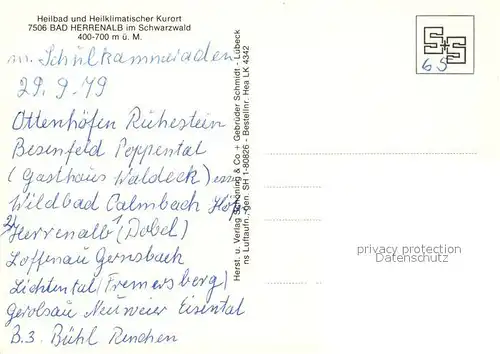 Heilbad und Heilklimatischer Kurort
7506 BAD HERRENALB im Schwarzwald
400-700 m ü. M.
m. Schulkammeraden
29.9.79
Ottenhöfen Ruhestein
Besenfeld Poppental
(Gasthaus Waldeck)
Wildbad Calmbach
2) Herrenalb 1 (Dobel)
Loffenau Gernsbach
Lichtental (Fremersberg)
Geroldsau Neuweier Eisental
B.3. Bühl Renchen
Herst. u. Verlag Schöning & Co + Gebrüder Schmidt - Lübeck
Bestellnr. Hea LK 4342
SH 1-80826
S+S
65
privacy protection
Datenschutz